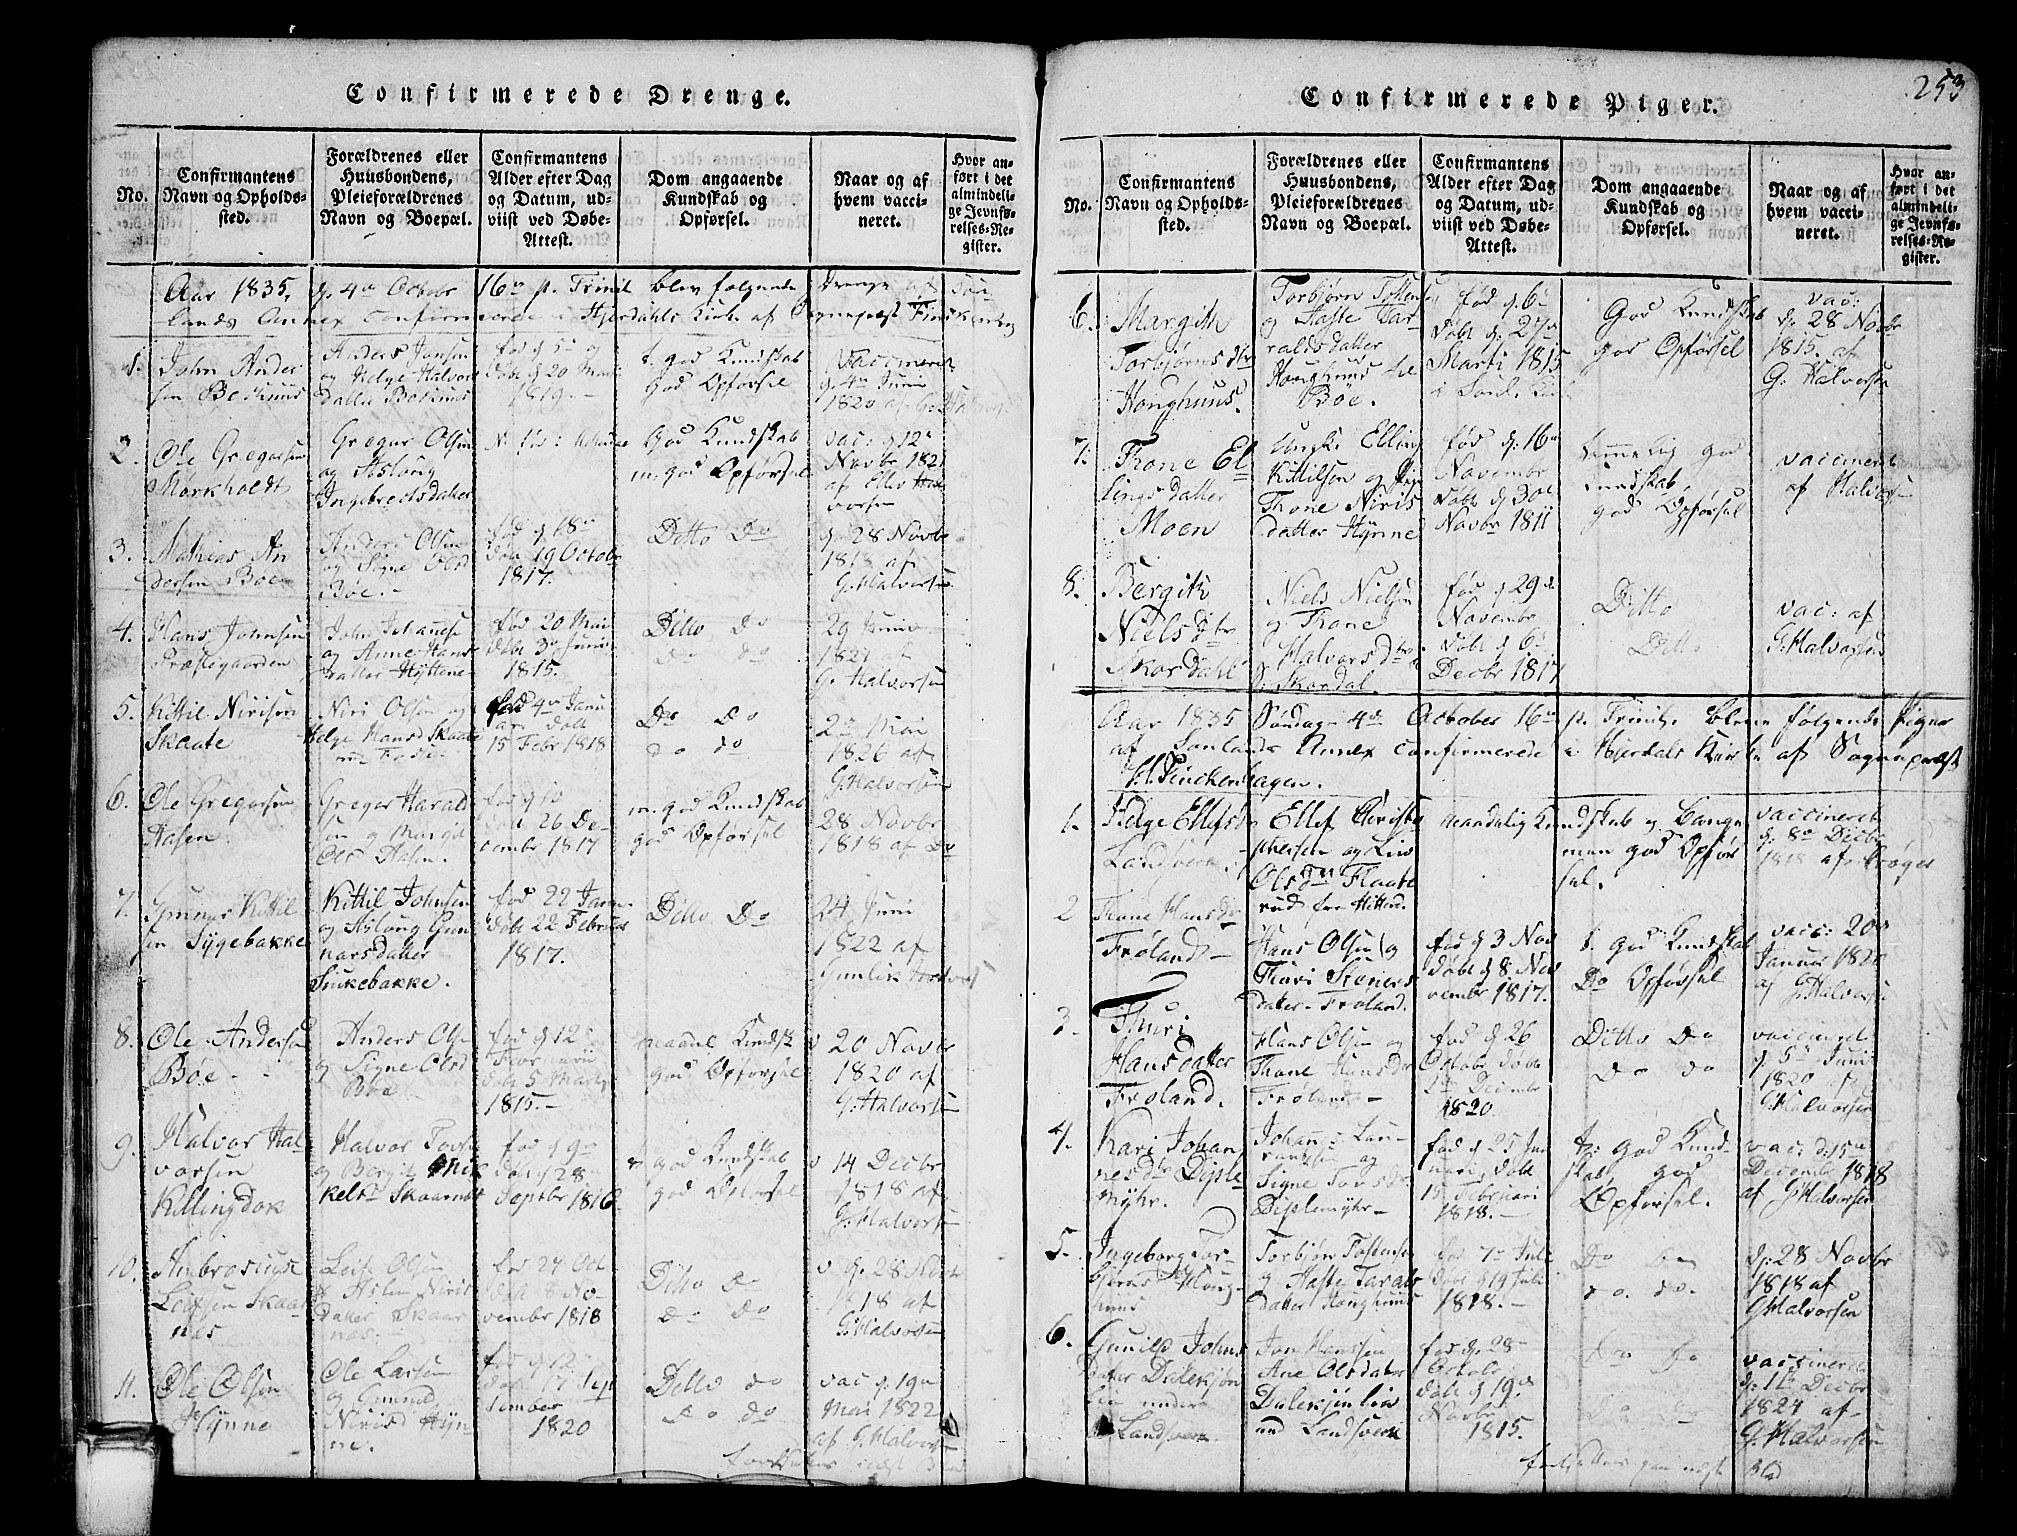 253
Confirmerede Drenge.
No.
Confirmantens
Navn og Opholds-
sted.
Forældrenes eller
Huusbondens,
Pleieforældrenes
Navn og Boepæl.
Confirmantens
Alder efter Dag
og Datum, ud-
viist ved Døbe-
Attest.
Dom angaaende
Kundskab og
Opførsel.
Naar og af
hvem vacci-
neret.
Hvor an-
ført i det
almindeli-
ge Jevnfø-
relses-Re-
gister.
Aar 1835, d. 4de Octobr 16de p. Trinit blev følgende Drenge af
lands Annex confirmerede i Hjerdahls Kirke af Sognepræst
1.
John Ander
sen Bøkhuus
Anders Jonsen
og Helge Halvors
datter
fød d 5te og
døbt d 20 Marti
1819.
t. god Kundskab
god Opførsel
Vaccineret
d. 4de Juni
1820 af G. Halvors.
2.
Ole Gregarsen
Mørkholdt
Gregar Olsen
og Aslaug
Ingebretsdatter
God Kundskab
m. god Opførsel
vac: d 12te
Novbr 1821
af Ellev Hal
vorsen
3.
Mathias An
dersen Bøe
Anders Olsen
og Signe Olsd
Bøe.
fød d 18de
døbt 19 Octobr
1817.
Ditto Do
d. 28 Novbr
1818 af
G. Halvorsen
4.
Hans Johnsen
Præstegaarden
John Johannes
og Anne Hans
datter Hyttene
fød 20 Mai
døbt 3de Juni
1815.
Ditto do
do do
29 Juni
1821 af
G. Halvorsen
5.
Kittil Nirisen
Skaate
Niri Olsen og
Helge Hans Skaate
fød 4de Janu
ar døbt
15 Febr 1818
Do do
do do
2den Mai
1826 af
G. Halvorsen
6.
Ole Gregarsen
Hasen
Gregar Harald
sen og Margit
Ols Hasen.
fød d 10
døbt 26 De-
cember 1817
m. god Kundskab
god Opførsel
28 Novbr
1818 af Do
7.
Gunnar Kittil
sen Sygebakke
Kittil Johnsen
og Aslaug Gun
narsdatter
Siukebakke.
fød 22 Janu
døbt 22 Februar
1817.
Ditto Do
24 Juni
1822 af
Gunlik
8.
Ole Andersen
Bøe
Anders Olsen
og Signe Olsd
Bøe
fød d 12te
døbt 5 Marts
1815.
maadel Kundsk
god Opførsel
20 Novbr
1820 af
G. Halvorsen
9.
Halvor Hal
vorsen
Killingdok
Halvor
og Bergit Mik
kelsd Skaarnes
fød d 9de
døbt d 28
Septbr 1816
god Kundskab
god Opførsel
14 Decbr
1818 af
G. Halvorsen
10.
Ambrosius
Leifsen Skaar
nes
Leif Olsen
og Aslou Niris
datter Skaar
nes.
fød 27 Oct
døbt 8 No-
vembr 1818
Ditto do
Do Do
v d. 28 Novbr
1818 af
G. Halvorsen
11.
Ole Olsen
Hynne
Ole Larsen
og Gunnild
Nirisd Hyn
ne.
fød d 12
døbt 17 Sep
tember
1820
Ditto do
do do
vac d. 19de
Mai 1822
af G. Halvors
Confirmerede Piger.
No.
Confirmantens
Navn og Opholds-
sted.
Forældrenes eller
Huusbondens,
Pleieforældrenes
Navn og Boepæl.
Confirmantens
Alder efter Dag
og Datum, ud-
viist ved Døbe-
Attest.
Dom angaaende
Kundskab og
Opførsel.
Naar og af
hvem vacci-
neret.
Hvor an-
ført i det
almindeli-
ge Jevnfø-
relses-Re-
gister.
6.
Margith
Torbjørns dtr
Honghuus.
Torbjørn Tostens
og Haste Har
raldsdatter
Honghuus
Bøe.
fød d. 6te
døbt d. 27de
Marti 1815
God Kundskab
god Opførsel
vac:
d. 28 Novbr
1815. af
G. Halvorsen
7.
Trone El
lings datter
Moen
Ungk. Elling
Kittilsen og Pige
Trone Niris
datter Hynne
fød d. 16de
Novembr
døbt d. 30te
Novbr 1811
temmelig god
Kundskab,
god Opførsel
vaccineret
af Halvorsen
8.
Bergith
Niels dtr
Skordahl
Niels Nielsen
og Trone
Halvors dtr
Skordal.
fød d 29de
Novembr
døbt d 6te
Decbr 1817
Ditto
Ditto
vac: af
G. Halvorsen
Aar 1835 Søndag 4de October 16de p. Trinit. bleve følgende Piger
af Sønlands Annex confirmerede i Hjerdals Kirke af Sognepræst
Finckenhagen.
1.
Helge Ellefsd
Landsverk
Ellef Christo
phersen og Liv
Olsdtr Flaate
rud fra Hitterd.
maadelig Kundskab og Bange
men god Opfør
sel.
vaccineret
d. 8de Decbr
1818 af
2
Trone Hansdtr
Frøland
Hans Olsen og
Thuri Steners
datter Frøland.
fød d 3 Nov
døbt d 8 No
vembr 1817.
t. god Kundskab
Do Opførsel
vacc: 20de
Januar 1820
af G. Halvorsen
3.
Thuri
Hansdatter
Frøland.
Hans Olsen og
Trone Hansdtr
Frøland
fød d 26
Octobr døbt
Decembr
1820
Ditto Do
do do
vaccineret
d 5te Juni
1820 af
G. Halvorsen
4.
Kari Johan
nesdtr Diple
myhr.
Johannes Lau-
rantsen og
Signe
Diplemyhr
fød d 25 Jan
nuari, døbt
15 Februari
1818.
t: god Kund-
skab, god
Opførsel.
vac: d: 15de
Decembr 1818
af G. Halvorsen
5.
Ingeborg Tor-
bjørns Hong-
huus
Torbjørn Tostensen
og Haste Taralds
datter Honghuus
fød 7de Juli
døbt d 19 Juli
1818.
Do Do
do. do.
d: 28 Novbr
1818 af
G Halvorsen
6.
Gunild Johns
datter Dalesjøn
lia under
Landsverk
Jon Hanssen
Ane Olsdatter
Dalesjønlia
und Landsverk
fød d. 28de
Octobr
døbt d 19de
Novbr
1815.
Do Do
Do
vaccineret
d. 1te Decbr
1824 af
G. Halvorsen
fortsættes paa næste Blad